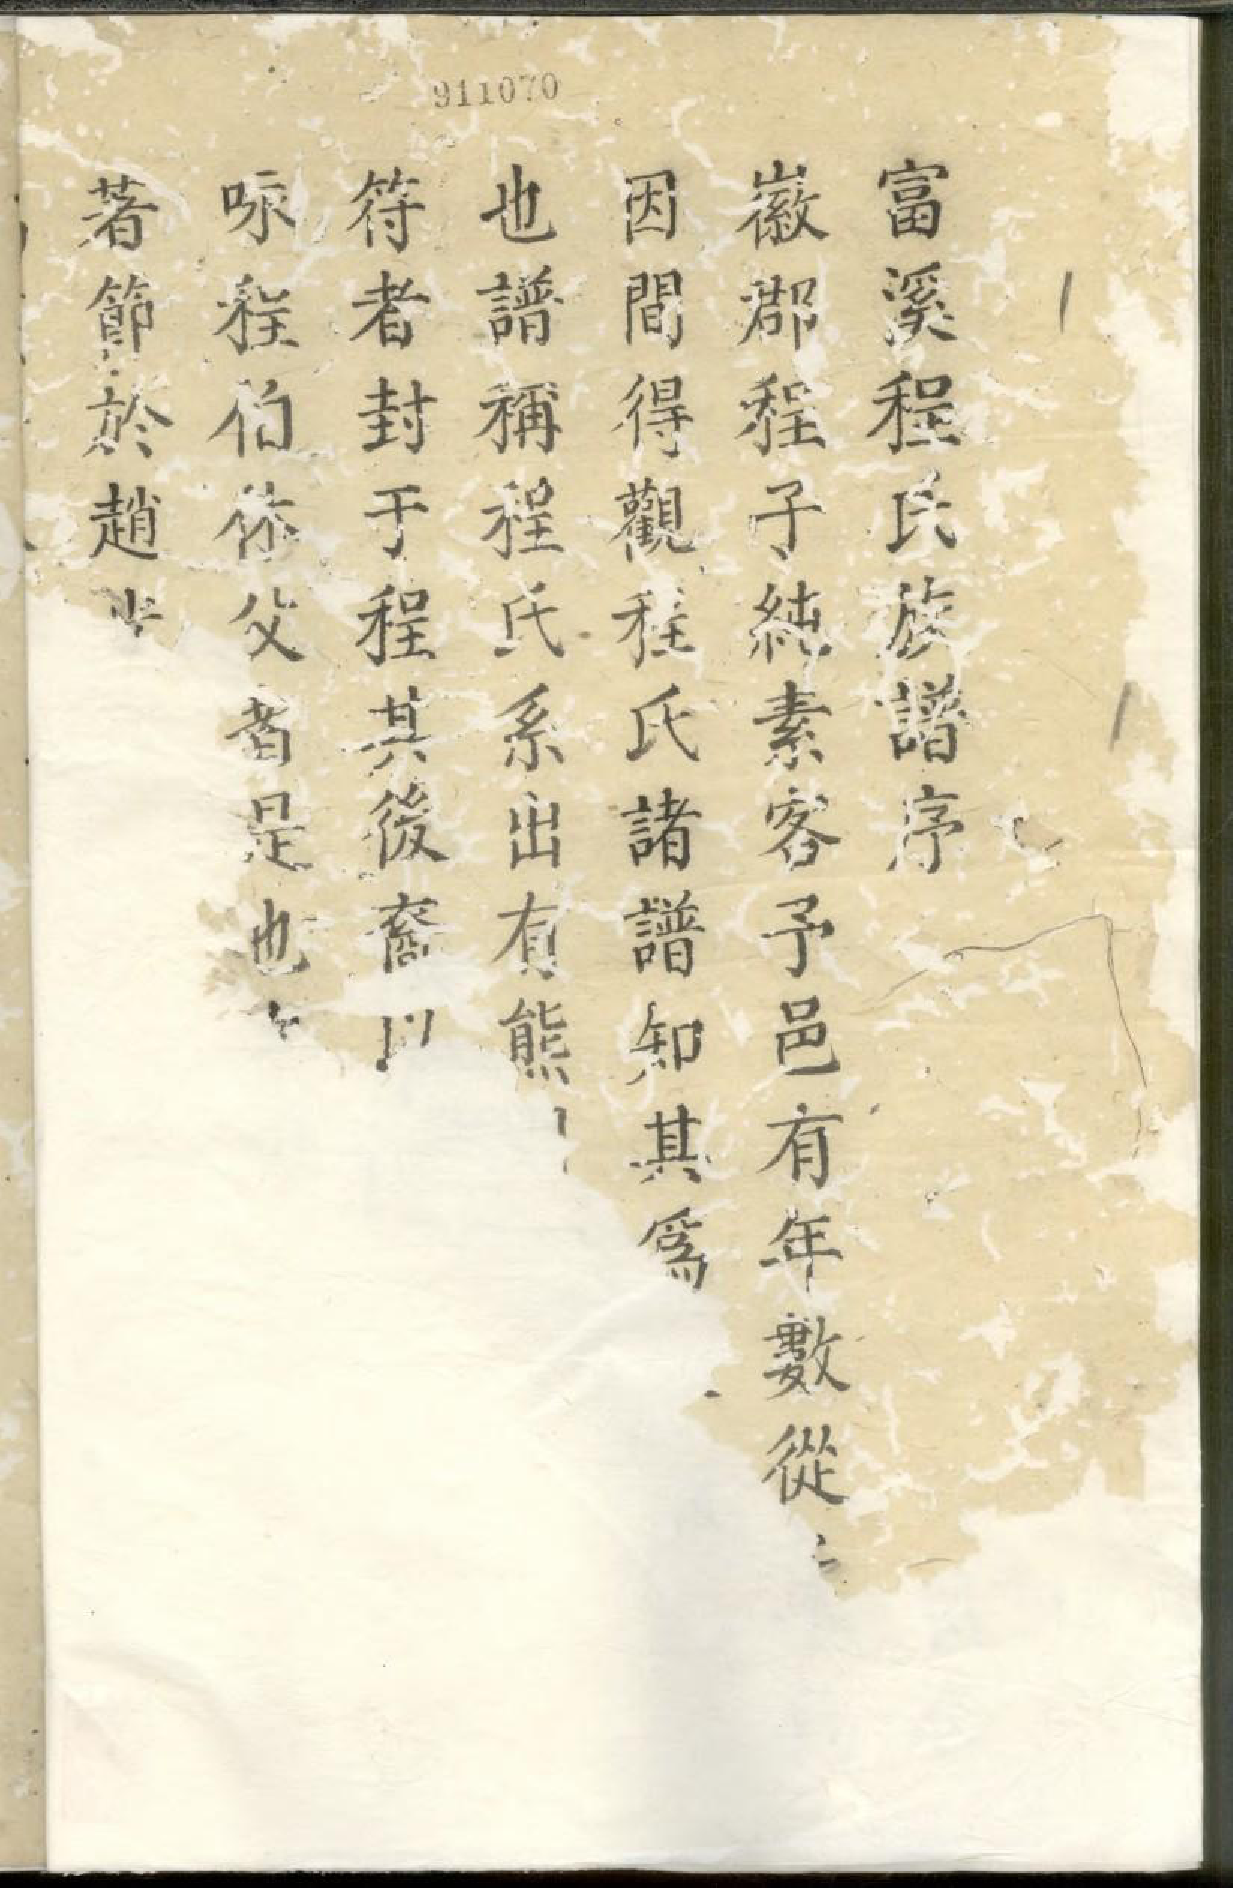 911070
富溪程氏族譜序
徽郡程子純素客予邑有年數從
因間得觀程氏諸譜知其爲
也譜稱程氏系出有熊
符者封于程其後裔以
咏程伯休父者是也
著節於趙